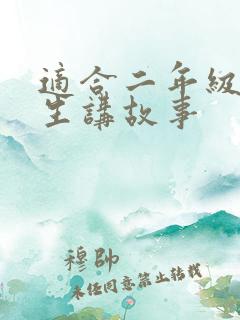 適合二年級
生講故事
穆帥
未经同意禁止转载